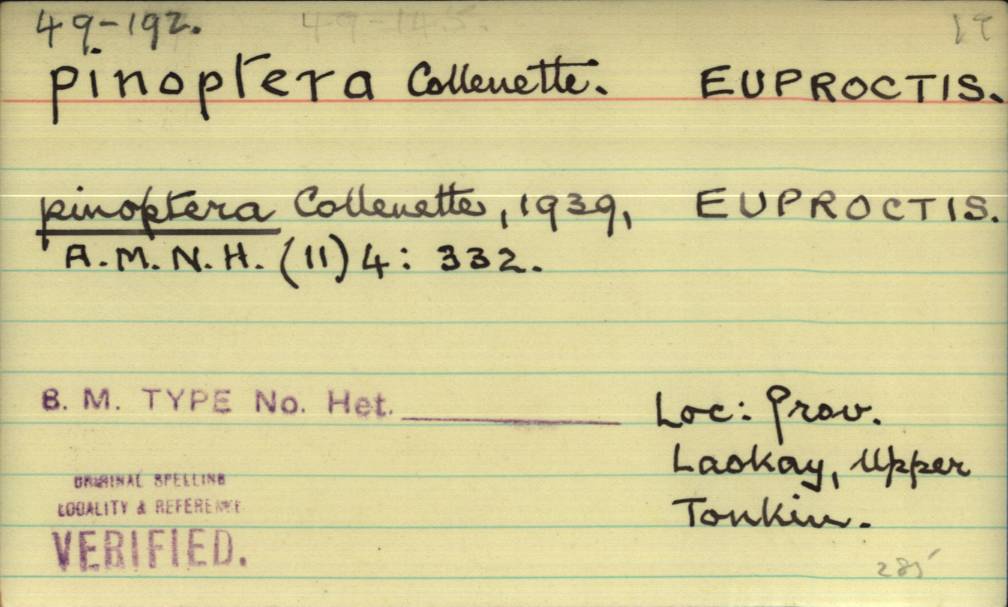 49-192. 49-145.
pinoptera Collenette. EUPROCTIS.
pinoptera Collenette, 1939, EUPROCTIS.
A.M.N.H. (11) 4: 332.
B. M. TYPE No. Het.
Loc: Prov.
Laokay, Upper
Tonkin.
ORIGINAL SPELLING
LOCALITY & REFERENCE
VERIFIED.
285